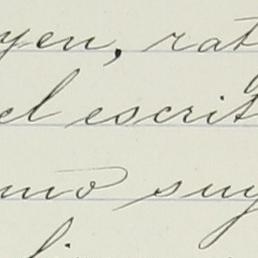 yen, rat
el escrit
mó suy